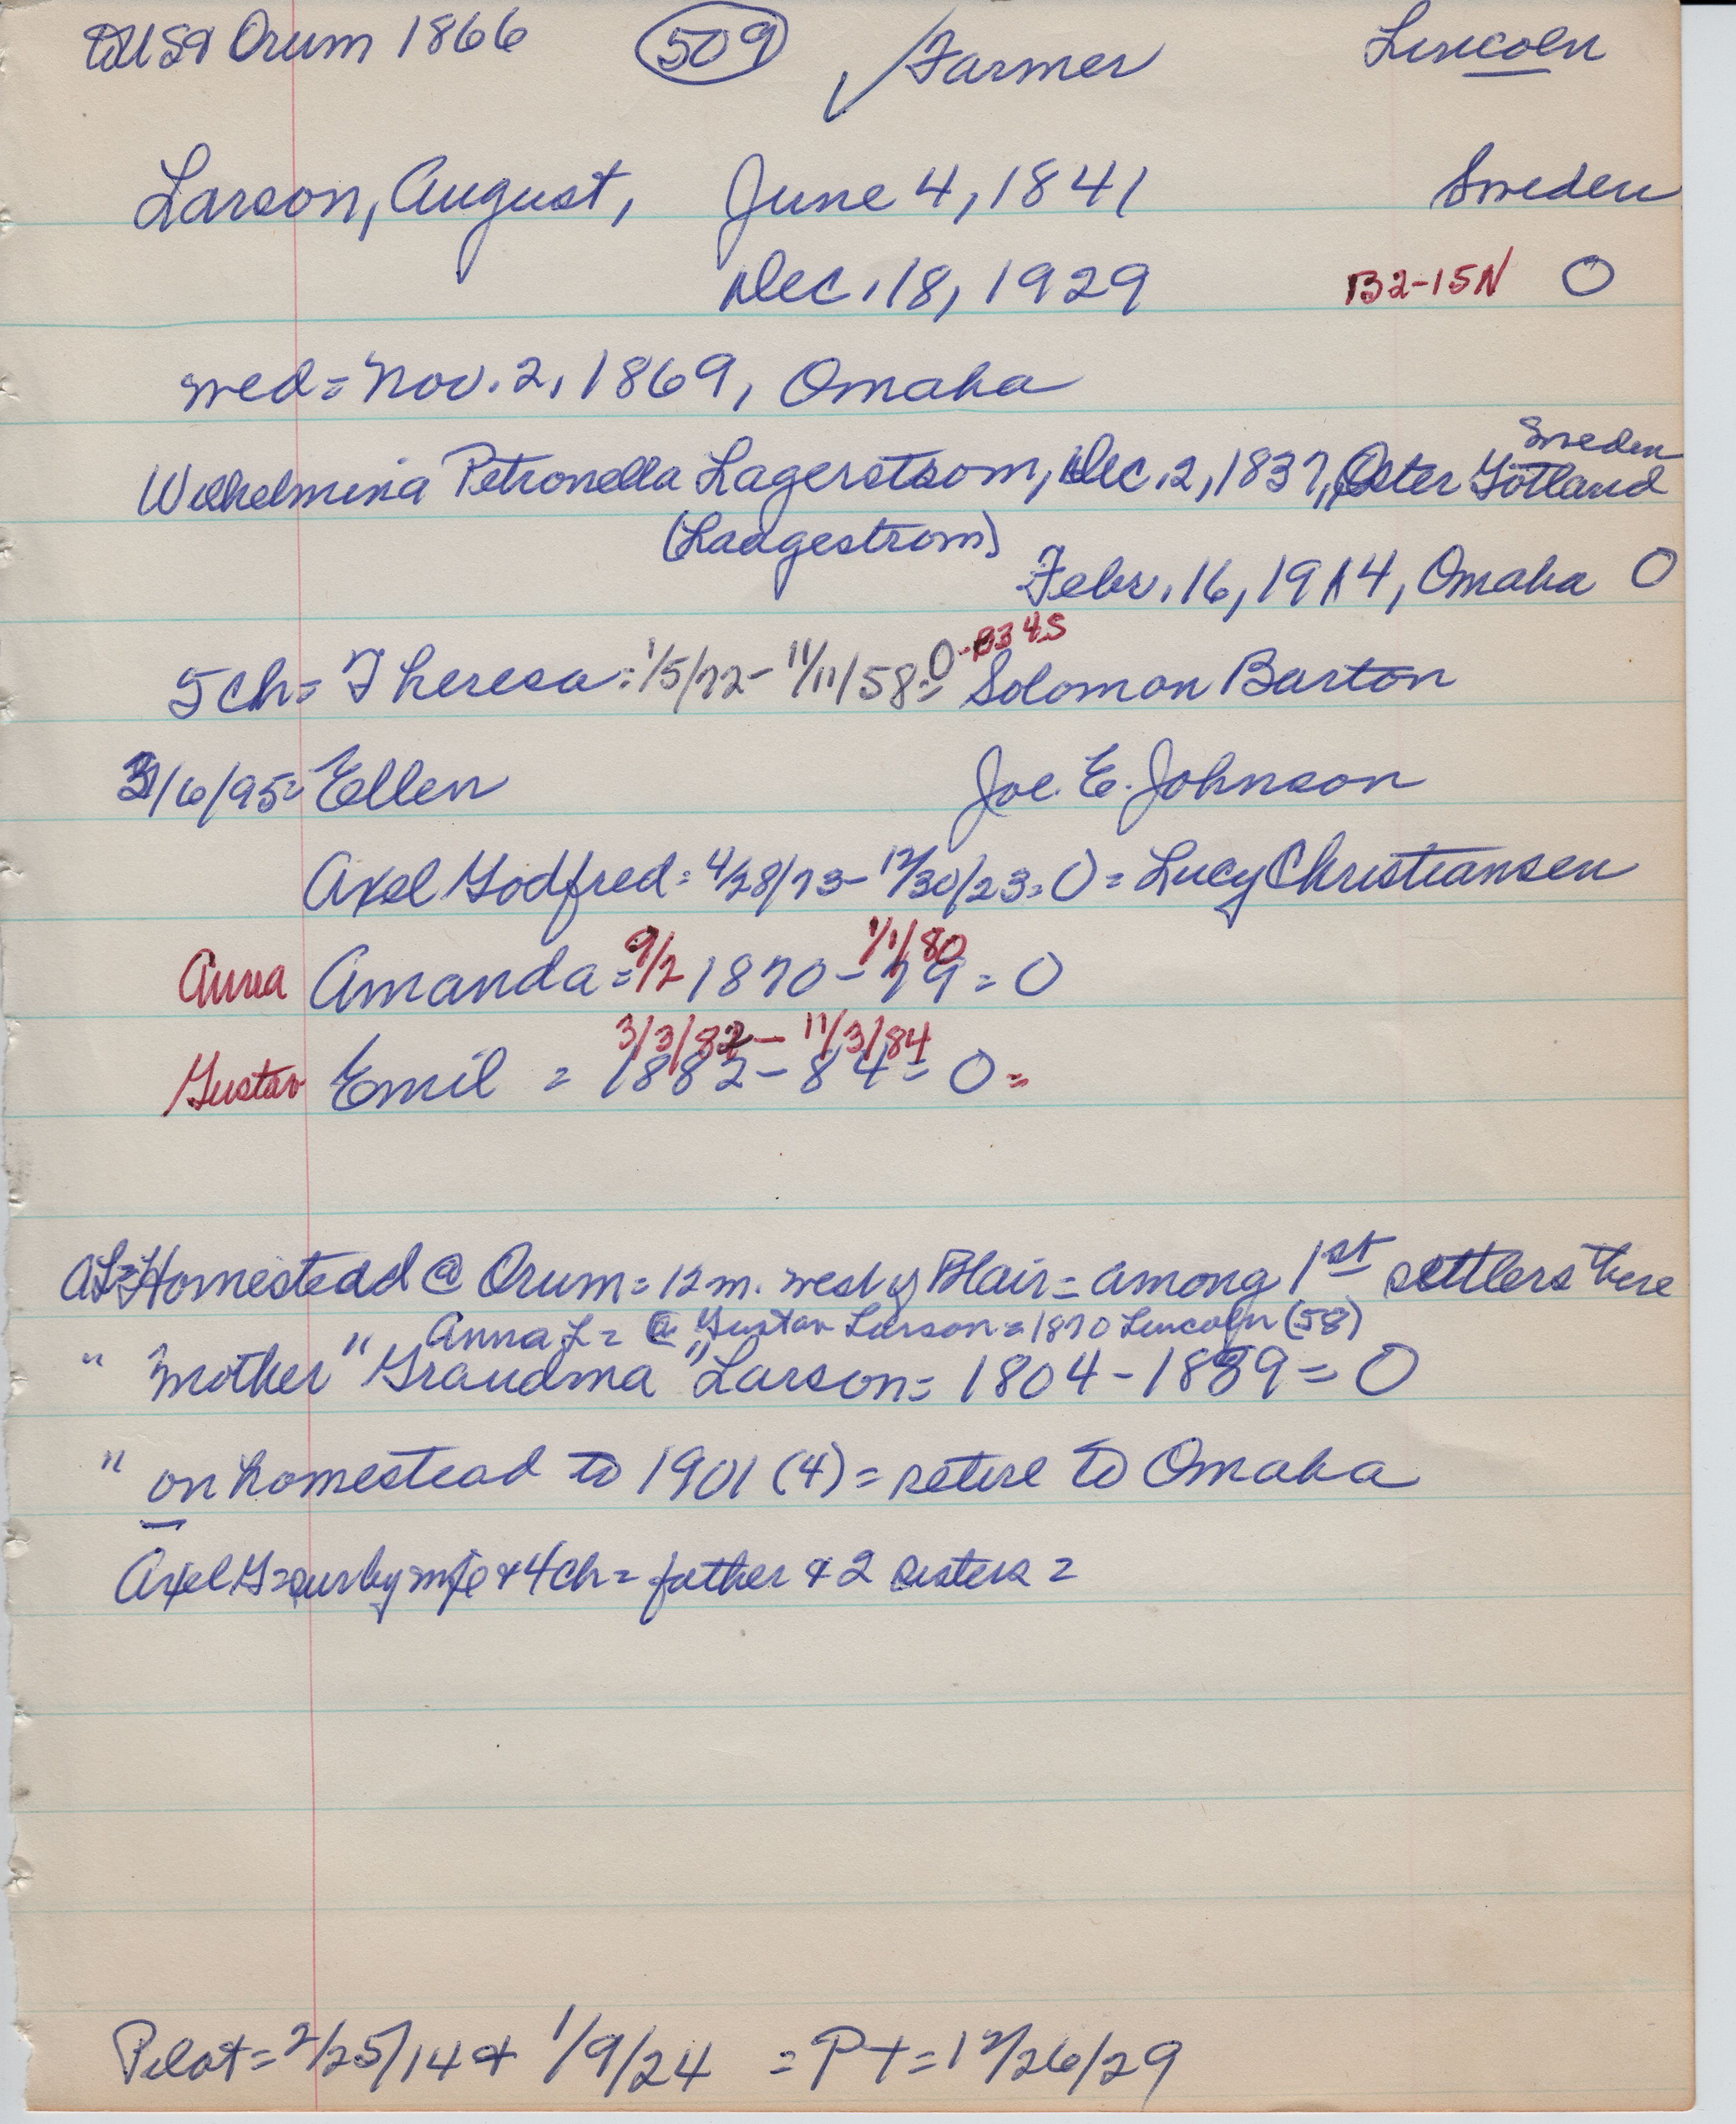 Orum 1866 509 Farmer Lincoln
Larson, August, June 4, 1841 Sweden
Dec. 18, 1929 B2-15N O
wed= Nov. 2, 1869, Omaha
Sweden
Wilhelmina Petronella Lagerstrom, Dec. 2, 1837, Oster Götland
(Laagestrom)
Febr. 16, 1914, Omaha O
5 ch= Theresa: 1/5/72- 11/11/58= O -B3 4S Solomon Barton
/6/95= Ellen Joe. E. Johnson
Axel Godfred: 4/28/73- 12/30/23= O = Lucy Christiansen
9/2 1/1/80
Anna Amanda = 1870-79 = O
3/3/82- 11/3/84
Gustav Emil = 1882-84= O =
AL=Homestead @ Orum= 12 m. west of Blair= among 1st settlers there
Anna L= @ Gustav Larson = 1870 Lincoln (58)
" mother "Grandma" Larson= 1804-1889= O
" on homestead to 1901 (4) = retire to Omaha
Axel G=surby wife & 4 ch= father & 2 sisters =
Pilot= 2/25/14 & 1/9/24 = PT= 12/26/29